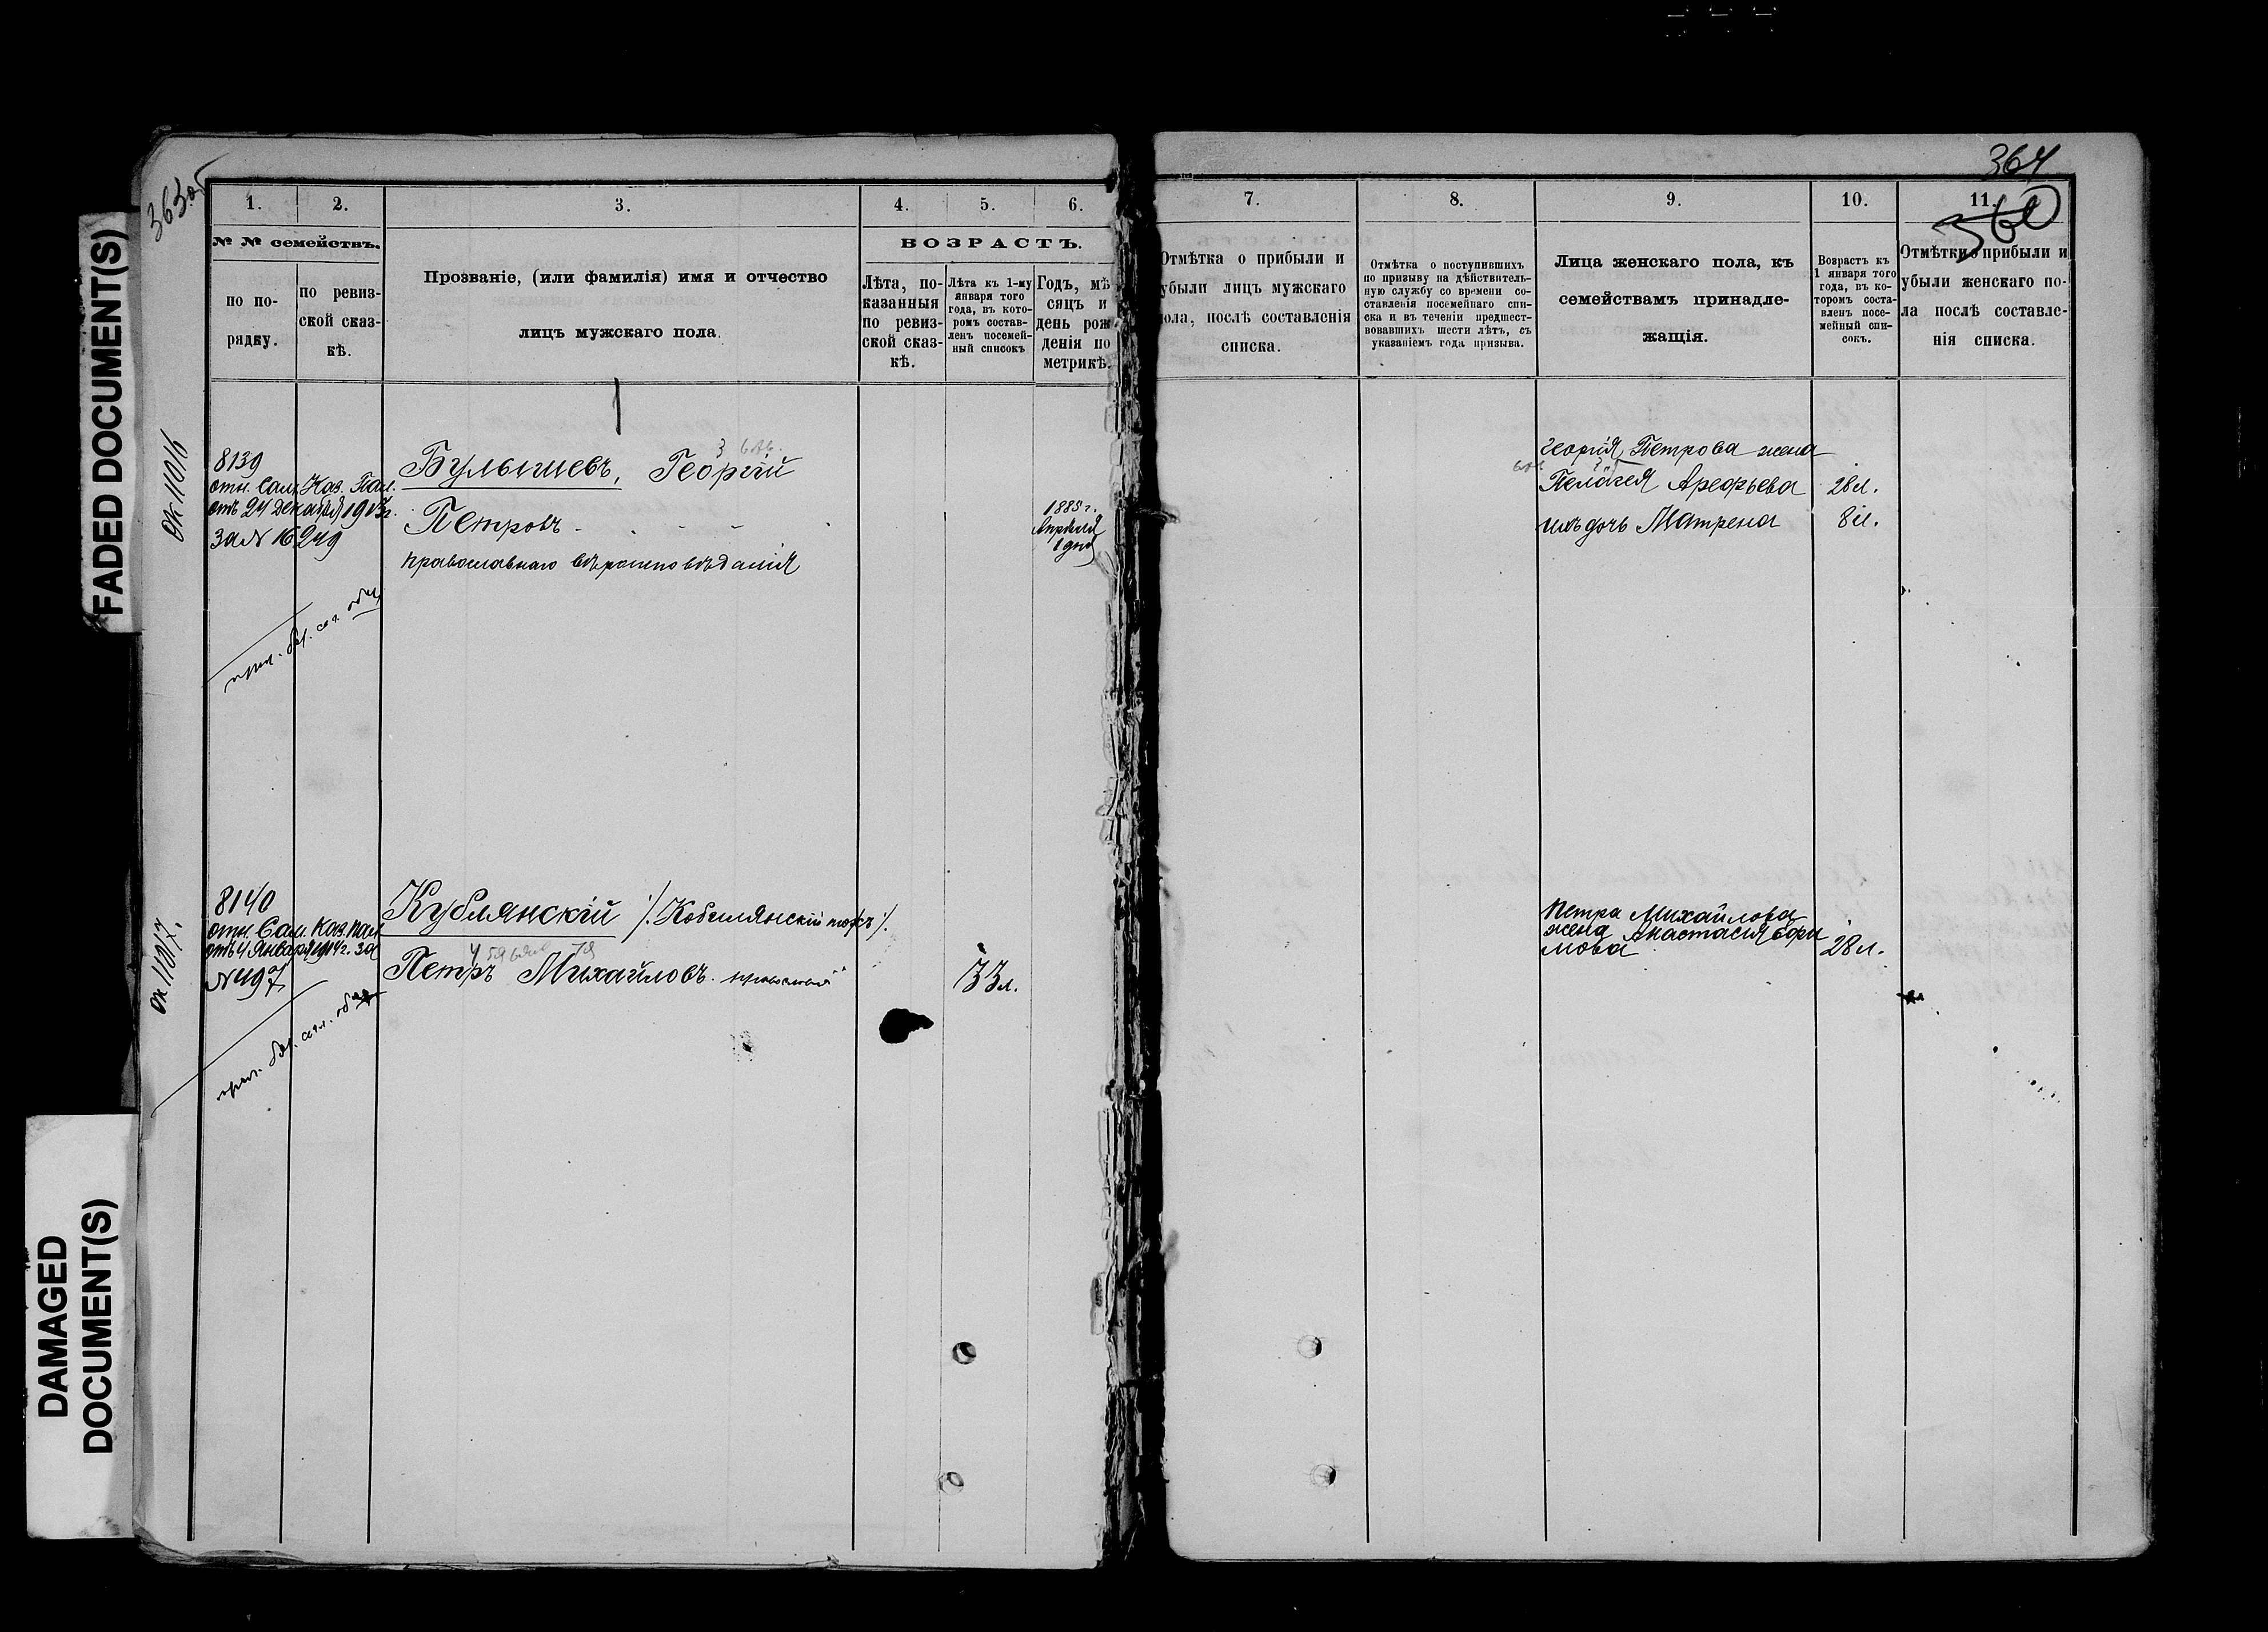 FADED DOCUMENT(S)
DAMAGED
DOCUMENT(S)
363об
364
360
1. 2. 3. 4. 5. 6.
№ № семействъ.
по по-
рядку.
по ревиз-
ской сказ-
кѣ.
Прозваніе, (или фамилія) имя и отчество
лицъ мужскаго пола.
ВОЗРАСТЪ.
Лѣта, по-
казанныя
по ревиз-
ской сказ-
кѣ.
Лѣта къ 1-му
января того
года, въ кото-
ромъ состав-
ленъ посемей-
ный списокъ
Годъ, мѣ
сяцъ и
день рож
денія по
метрикѣ.
7. 8. 9. 10. 11.
Отмѣтка о прибыли и
убыли лицъ мужскаго
пола, послѣ составленія
списка.
Отмѣтка о поступившихъ
по призыву на дѣйствитель-
ную службу со времени со-
ставленія посемейнаго спи-
ска и въ теченіи предшест-
вовавшихъ шести лѣтъ, съ
указаніемъ года призыва.
Лица женскаго пола, къ
семействамъ принадле-
жащія.
Возрастъ къ
1 января того
года, въ ко-
торомъ соста-
вленъ посе-
мейный спи-
сокъ.
Отмѣтки о прибыли и
убыли женскаго по-
ла послѣ составле-
нія списка.
ок 11016
8139
отн. Сам. Каз. Пал.
отъ 24 декабря 1913г.
за № 16249
Булычевъ, Георгій
Петровъ
православнаго вѣроисповѣданія
1885 г.
Апрѣля
1 дня
Георгія Петрова жена
Пелагея Арефьева 28 л.
ихъ дочь Матрена 8 л.
ок 11017.
8140
отн. Сам. Каз. Пал
отъ 4 Января 1914 г. за
№ 497
Кублянскій /. Кобылянскій тожъ /.
Петръ Михайловъ
33 л.
Петра Михайлова
жена Анастасія Ефи
мова 28 л.